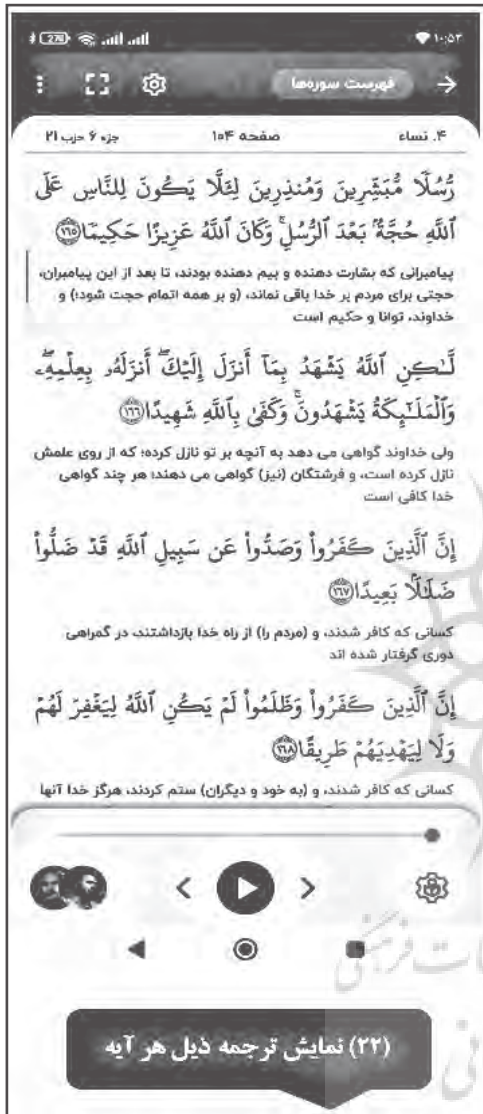 27% ۱۰:۵۳
فهرست سوره‌ها
۴. نساء صفحه ۱۰۴ جزء ۶ حزب ۲۱
رُّسُلًا مُّبَشِّرِينَ وَمُنذِرِينَ لِئَلَّا يَكُونَ لِلنَّاسِ عَلَى
ٱللَّهِ حُجَّةُۢ بَعْدَ ٱلرُّسُلِۚ وَكَانَ ٱللَّهُ عَزِيزًا حَكِيمًا۝۱۶۵
پیامبرانی که بشارت دهنده و بیم دهنده بودند، تا بعد از این پیامبران،
حجتی برای مردم بر خدا باقی نماند، (و بر همه اتمام حجت شود؛) و
خداوند، توانا و حکیم است
لَّـٰكِنِ ٱللَّهُ يَشْهَدُ بِمَآ أَنزَلَ إِلَيْكَۖ أَنزَلَهُۥ بِعِلْمِهِۦۖ
وَٱلْمَلَـٰٓئِكَةُ يَشْهَدُونَۚ وَكَفَىٰ بِٱللَّهِ شَهِيدًا۝۱۶۶
ولی خداوند گواهی می دهد به آنچه بر تو نازل کرده؛ که از روی علمش
نازل کرده است، و فرشتگان (نیز) گواهی می دهند؛ هر چند گواهی
خدا کافی است
إِنَّ ٱلَّذِينَ كَفَرُوا۟ وَصَدُّوا۟ عَن سَبِيلِ ٱللَّهِ قَدْ ضَلُّوا۟
ضَلَـٰلًۢا بَعِيدًا۝۱۶۷
کسانی که کافر شدند، و (مردم را) از راه خدا بازداشتند، در گمراهی
دوری گرفتار شده اند
إِنَّ ٱلَّذِينَ كَفَرُوا۟ وَظَلَمُوا۟ لَمْ يَكُنِ ٱللَّهُ لِيَغْفِرَ لَهُمْ
وَلَا لِيَهْدِيَهُمْ طَرِيقًا۝۱۶۸
کسانی که کافر شدند، و (به خود و دیگران) ستم کردند، هرگز خدا آنها
(۲۲) نمایش ترجمه ذیل هر آیه